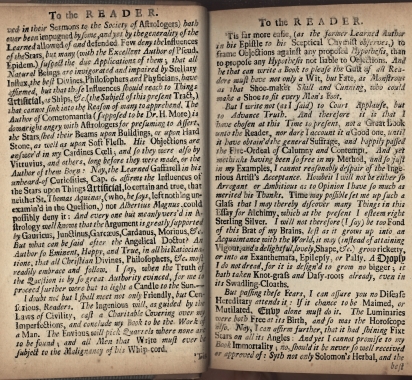 To the READER.
ved in their Sermons to the Society of Astrologers) hath
ever been impugned by some, and yet by the generality of the
Learned allowed of and defended. Few deny the Influences
of the Stars, but many (with the Excellent Author of Pseud.
Epidem.) suspect the due Application of them; that all
Natural Beings are invigorated and impaired by Stellary
Influx, the best Divines, Philosophers and Physicians, have
affirmed, but that these Influences should reach to Things
Artificial, or Ships, &c. (the Subject of this present Tract,)
that cannot sink into the Reason of many to apprehend. The
Author of Cometomantia (supposed to be Dr. H. More) is
damnably angry with Astrologers for presuming to Assert,
the Stars shed their Beams upon Buildings, or upon Hard
Stone, as well as upon Soft Flesh. His Objections are
ensuare'd in my Cardines Cœli; and so they were also by
Vitruvius, and others, long before they were made, or the
Author of them Born: Nay, the Learned Gaffarell in his
unheard-of Curiosities, Cap. 6. affirms the Influences of
the Stars upon Things Artificial, so certain and true, that
neither St. Thomas Aquinas, (who, he says, left nothing un-
examin'd in the Question,) nor Albertus Magnus could
possibly deny it: And every one but meanly vers'd in As-
trology well knows that the Argument is greatly supported
by Gauricus, Junctinus, Garcæus, Cardanus, Morinus, &c.
But what can be said after the Angelical Doctor? An
Author so Eminent, Happy, and True, in all his Ratiocina-
tions; that all Christian Divines, Philosophers, &c. most
readily embrace and follow. I say, when the Truth of
the Question is by so great Authority evinced, for me to
proceed further were but to light a Candle to the Sun.
I doubt not but I shall meet not only Friendly, but Cen-
sorious, Readers. The Ingenious will, as guided by the
Laws of Civility, cast a Charitable Covering over my
Imperfections, and conclude my Book to be the Work of
a Man. The Envious will pick Quarrels where none are
to be found; and all Men that Write must ever be
subject to the Malignancy of his Whip-cord.
'Tis
To the READER.
'Tis far more easie, (as the former Learned Author
in his Epistle to his Sceptical Chymist observes,) to
frame Objections against any proposed Hypothesis, than
to propose any Hypothesis not liable to Objections. And
he that can write a Book to please the Gust of all Rea-
ders must have not only a Wit, but Fate, as Monstrous
as that Shoe-maker's Skill and Cunning, who could
make a Shooe to fit every Man's Foot.
But I write not (as I said) to Court Applause, but
to Advance Truth. And therefore it is that I
have chosen at this Time to present, not a Great Book
unto the Reader, nor dare I account it a Good one, until
it have obtain'd the general Suffrage, and happily passed
the Fire-Ordeal of Calumny and Contempt. And yet
mistakes having been so free in my Method, and so just
in my Examples, I cannot reasonably despair of the Inge-
nious Artist's Acceptance. Howbeit I will not be either so
Arrogant or Ambitious as to Opinion I have so much as
merited his Thanks. Time may possibly set me up such a
Glass that I may thereby discover many Things in this
Essay for Alchimy, which at the present I esteem right
Sterling Silver. I will not therefore (I say) be too Fond
of this Brat of my Brains, lest as it grows up into an
Acquaintance with the World, it may (instead of attaining
Vigour, and a delightful, lovely, Shape, &c.) grow rickety,
or into an Exanthemata, Epilepsy, or Palsy. A Dropsy
I do not dread, for it is design'd to grow no bigger; it
hath taken Knot-grass and Dasy-roots already, even in
its Swadling-Cloaths.
But passing these Fears, I can assure you no Diseases
Hereditary attends it: If it chance to be Maimed, or
Mutilated, Envy alone must do it. The Luminaries
were both Free at its Birth, and so was the Horoscope
also. Nay, I can affirm further, that it had shining Fixt
Stars on all its Angles. And yet I cannot promise to my
self Immortality; no, should it be never so well received
or approved of: Syth not only Solomon's Herbal, and the
best